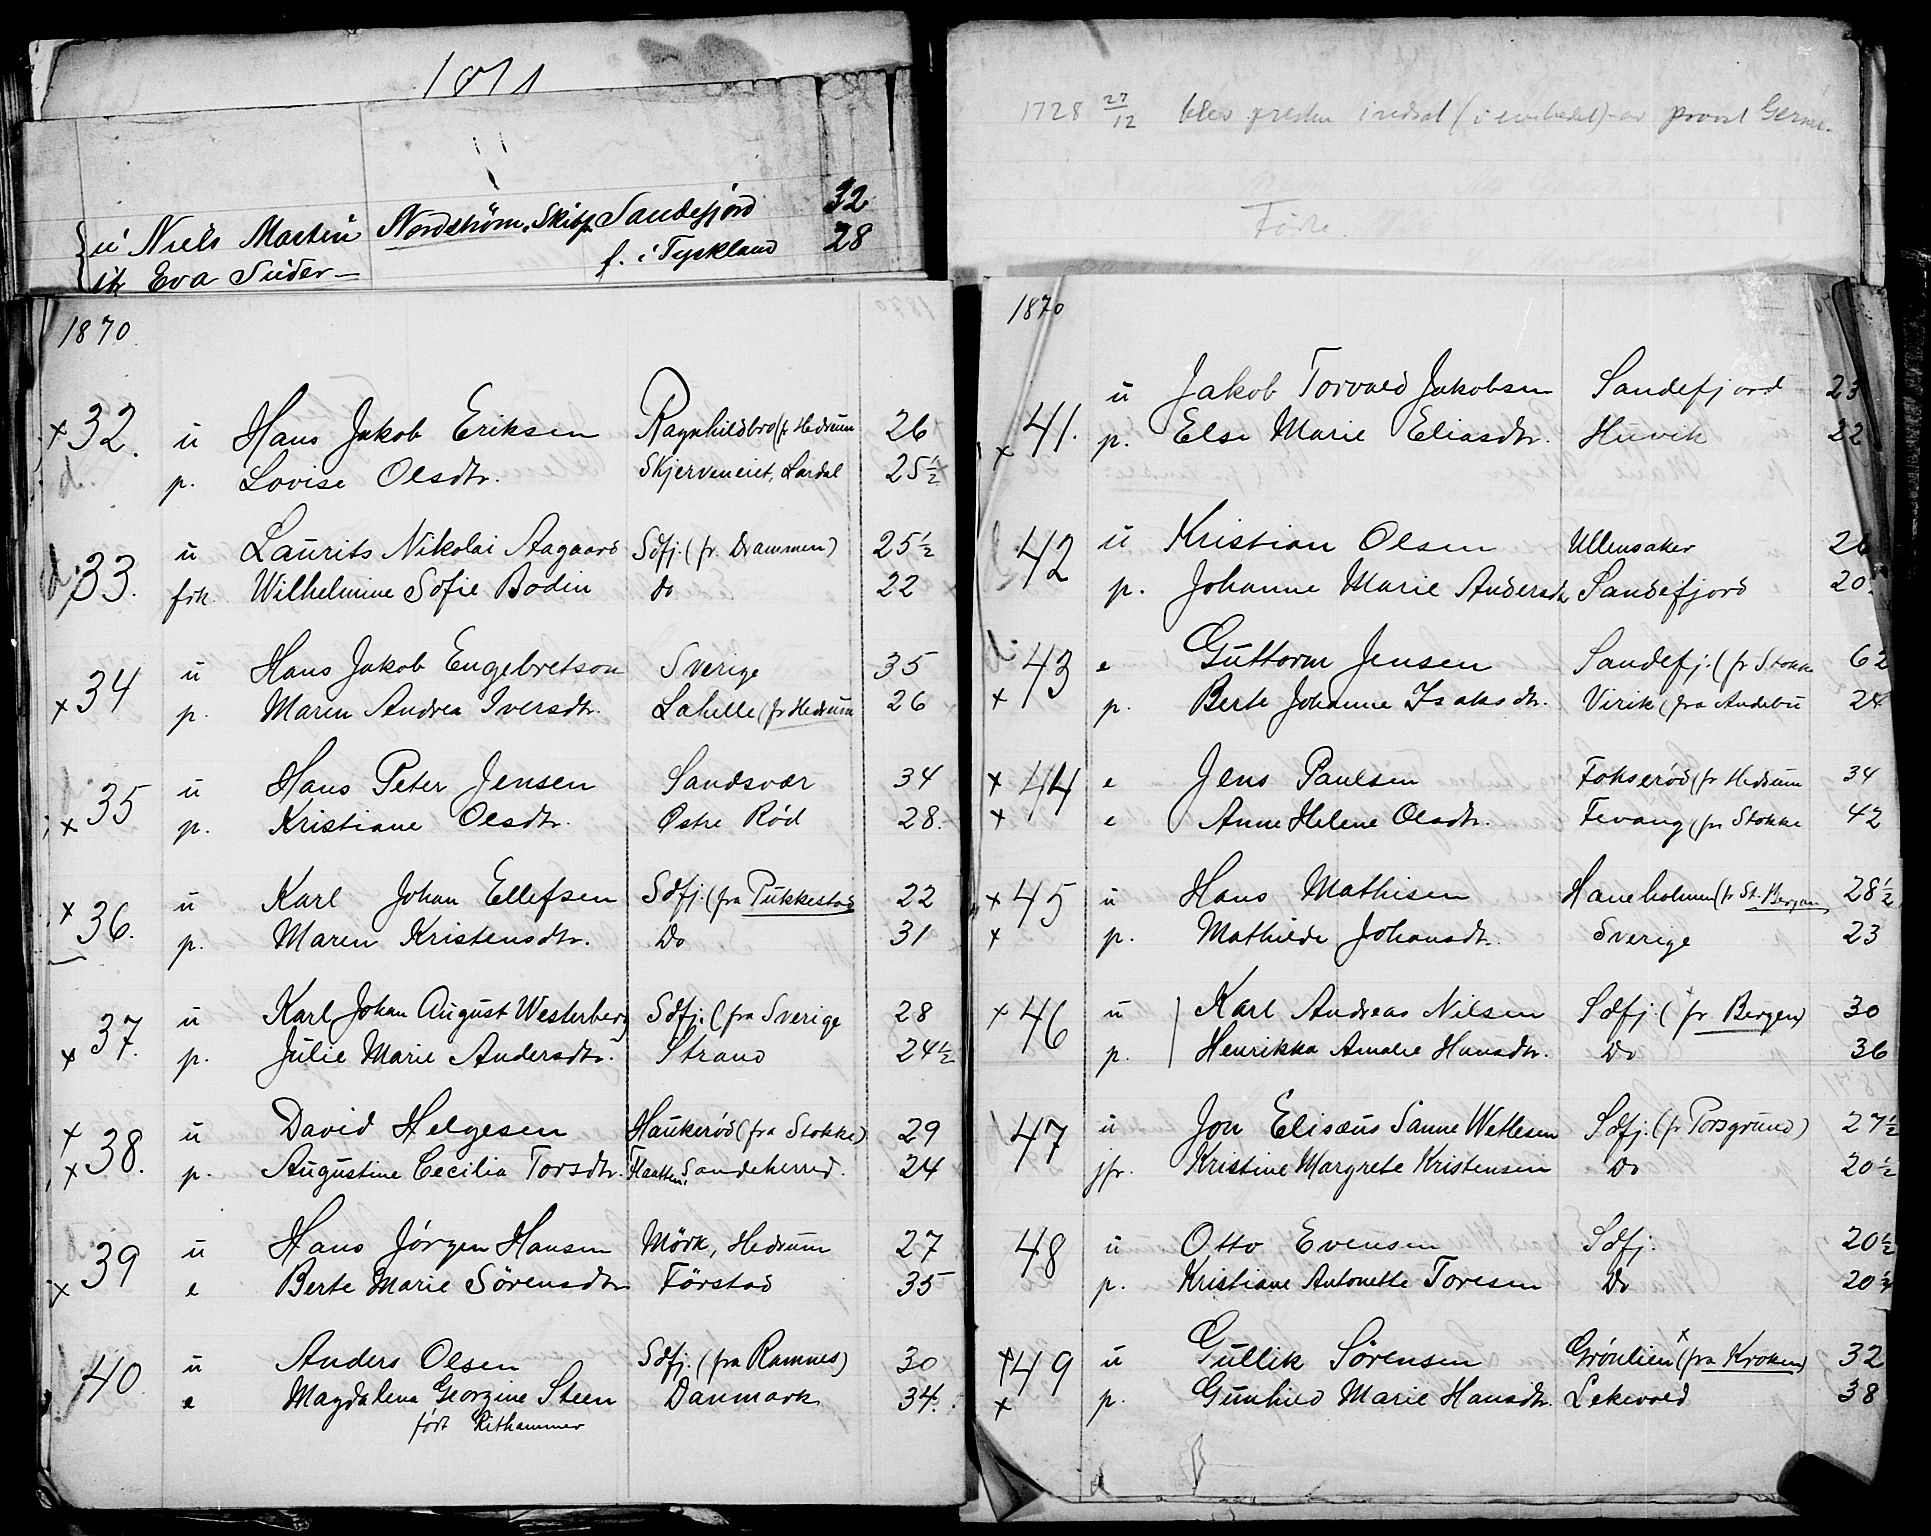 1871
u Niels Martin Nordström, Skibsf. Sandefjord 32
Eva Suder — f. i Tyskland 28
1870
x 32. u Hans Jakob Eriksen Ragnhildbro (fr Hedrum 26
d. p. Lovise Olsdtr. Skjerveneiet, Lardal 25½
d. 33. u Laurits Nikolai Aagaard Sdfj. (fr. Drammen) 25½
frk. Wilhelmine Sofie Bodin Do 22
34 u Hans Jakob Engebretson Sverige 35
x p. Maren Andrea Iversdtr. Lahelle (fr Hedrum 26
35 u Hans Peter Jensen Sandsvær 34
x p. Kristiane Olsdtr. Østre Rød 28.
x 36. u Karl Johan Ellefsen Sdfj. (fra Pukkestad 22
p. Maren Kristensdtr. Do 31
37. u Karl Johan August Westerberg Sdfj. (fra Sverige 28
x p. Julie Marie Andersdtr. Strand 24½
x 38. u David Helgesen Haukerød (fra Stokke) 29
x p. Augustine Cecilia Torsdtr. Flaatten, Sandeherred. 24
39 u Hans Jørgen Hansen Mörk, Hedrum 27
x e Berte Marie Sörensdtr. Förstad 35
40. u Anders Olsen Sdfj. (fra Ramnes) 30
e Magdalena Georgine Steen Danmark 34.
født Rithammer
1728 27/12 blev presten indsat (i embedet) av provst
Føtte.
1870
41. u Jakob Torvald Jakobsen Sandefjord 23
x p. Else Marie Eliasdtr. Huvik 22
42 u Kristian Olsen Ullensaker 26
p. Johanne Marie Andersdtr Sandefjord 20
d. 43 e Guttorm Jensen Sandefj. (fr Stokke 62
x p. Berte Johanne Isaksdtr. Virik (fra Andebu 24
x 44 e Jens Paulsen Fokserød (fr Hedrum 34
x e Anne Helene Olsdtr. Fevang (fr Stokke 42
x 45 u Hans Mathisen Haneholmen (fr St. Bergan 28½
x p. Mathilde Johansdtr. Sverige 23
x 46 u Karl Andreas Nilsen Sdfj. (fr. Bergen) 30
p. Henrikka Amalie Hansdtr. Do 36
47 u Jon Elisæus Sanne Wetlesen Sdfj. (fr Porsgrund) 27½
jfr. Kristine Margrete Kristensen Do 20½
48 u Otto Evensen Sdfj. 20½
p. Kristiane Antonette Toresen Do 20½
x 49 u Gullik Sørensen Grónlien x (fra Kroken) 32
x p. Gunhild Marie Hansdtr. Lekevold 38